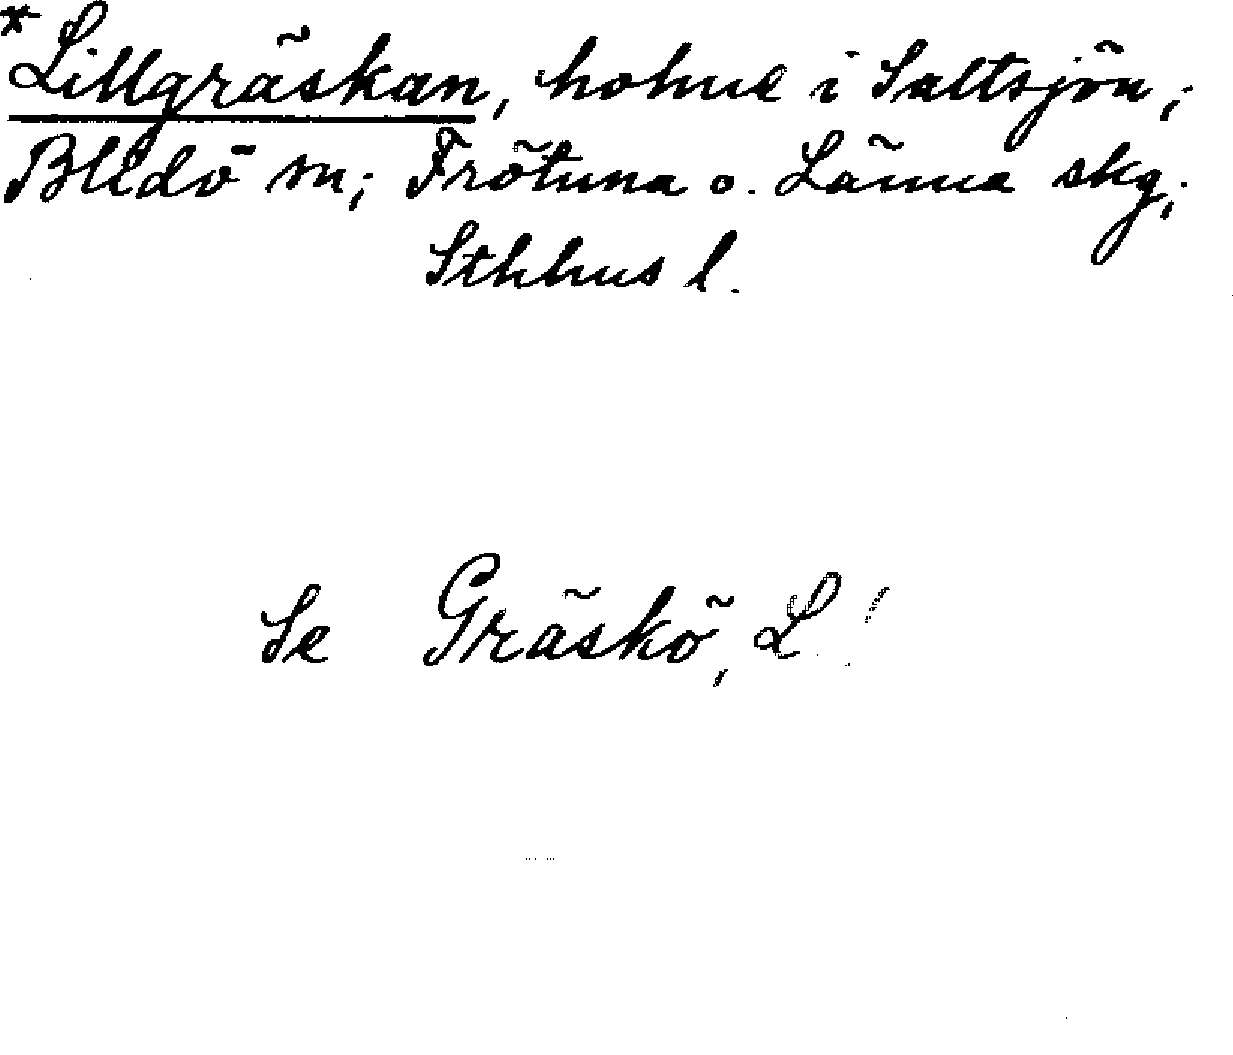 *Lillgräskan, holme i Saltsjön;
Blidö sn; Frötuna o. Länna skg;
Sthlms l.
Se Gräskö, L!